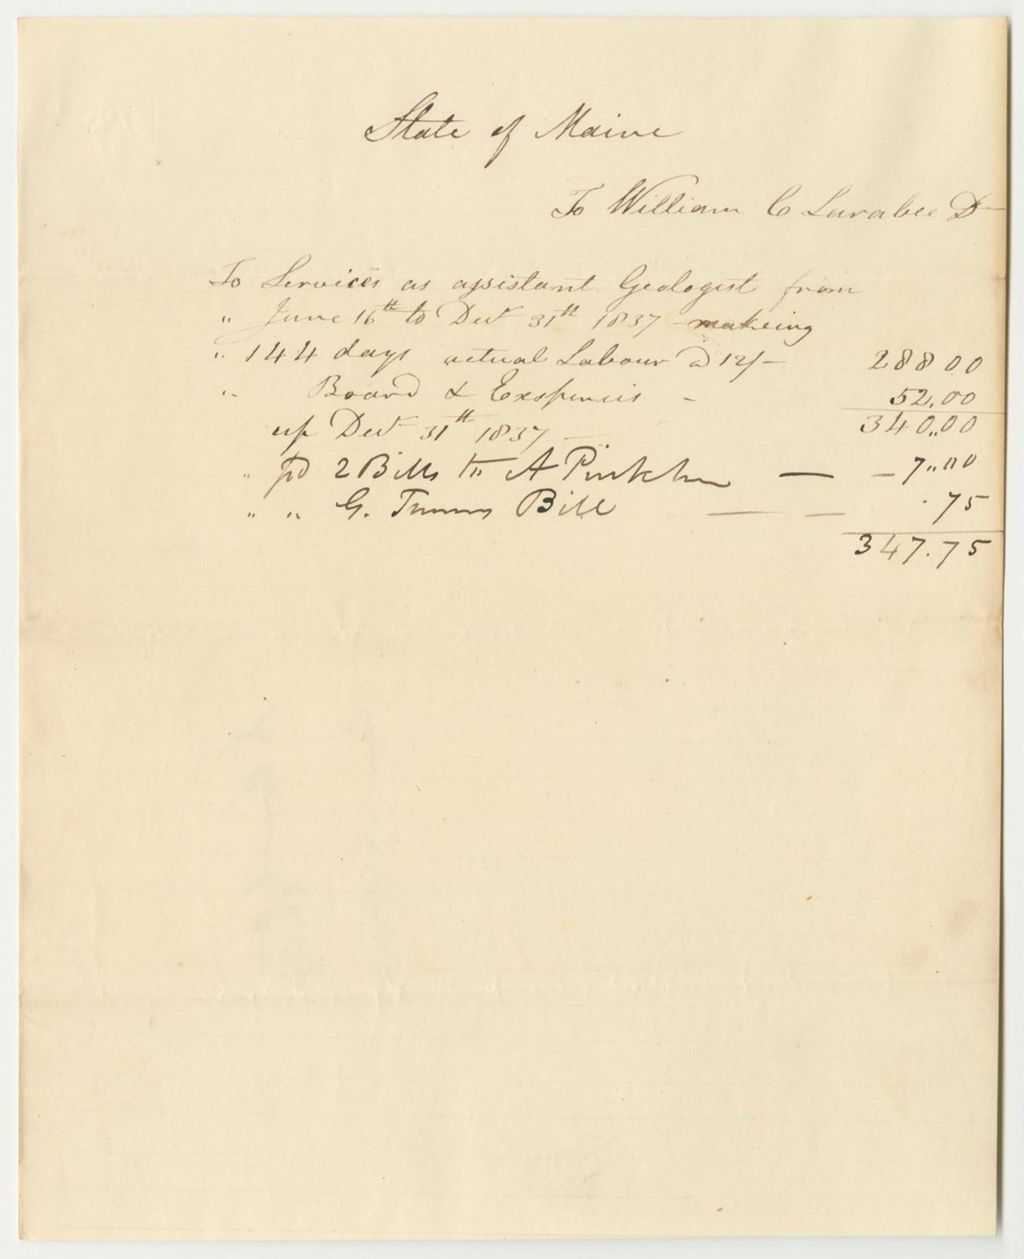 State of Maine
To William C Larabee Dr
To Services as assistant Geologist from
" June 16th to Dect 31st 1837 - makeing
" 144 days actual Labour a 12/- 288 00
" Board & Exspencis - 52.00
up Dect 31st 1837 - 340.00
" pd 2 Bills to A Pinkham — - 7.00
" " G. Bill — - .75
347.75